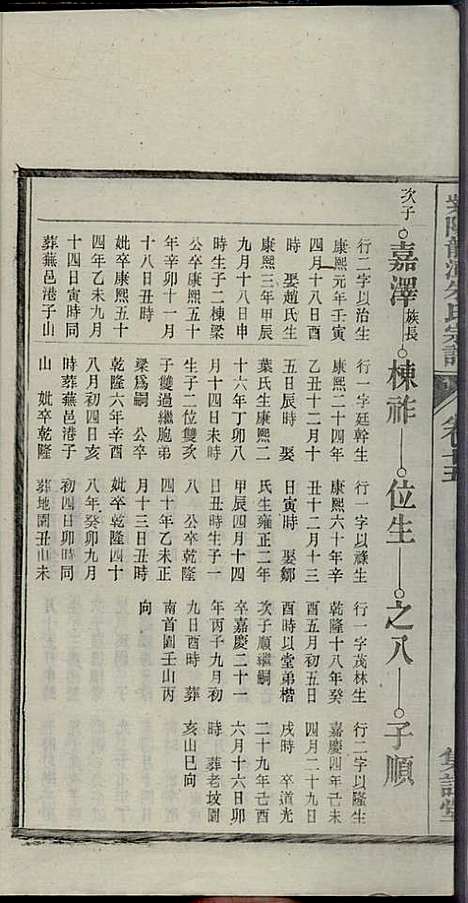 氏宗譜
卷十五
次子 嘉澤 族長 棟祚 位生 之八 子順
行二字以治生
康熙元年壬寅
四月十八日酉
時 娶趙氏生
康熙三年甲辰
九月十八日申
時生子二棟梁
公卒康熙五十
年辛卯十一月
十八日丑時
妣卒康熙五十
四年乙未九月
十四日寅時同
葬蕪邑港子山
行一字廷幹生
康熙二十四年
乙丑十二月十
五日辰時 娶
葉氏生康熙二
十六年丁卯八
月十四日未時
生子二位雙亥
子雙過繼胞弟
梁爲嗣 公卒
乾隆六年辛酉
八月初四日亥
時葬蕪邑港子
山 妣卒乾隆
行一字以祿生
康熙六十年辛
丑十二月十三
日寅時 娶鄒
氏生雍正二年
甲辰四月十四
日丑時生子一
八 公卒乾隆
四十年乙未正
月十三日丑時
妣卒乾隆四十
八年癸卯九月
初四日卯時同
葬地園丑山未
行一字茂林生
乾隆十八年癸
酉五月初五日
酉時以堂弟楷
次子順繼嗣
卒嘉慶二十一
年丙子九月初
九日酉時 葬
南首園壬山丙
向
行二字以隆生
嘉慶四年己未
四月二十九日
戌時 卒道光
二十九年己酉
六月十六日卯
時 葬老坡園
亥山巳向